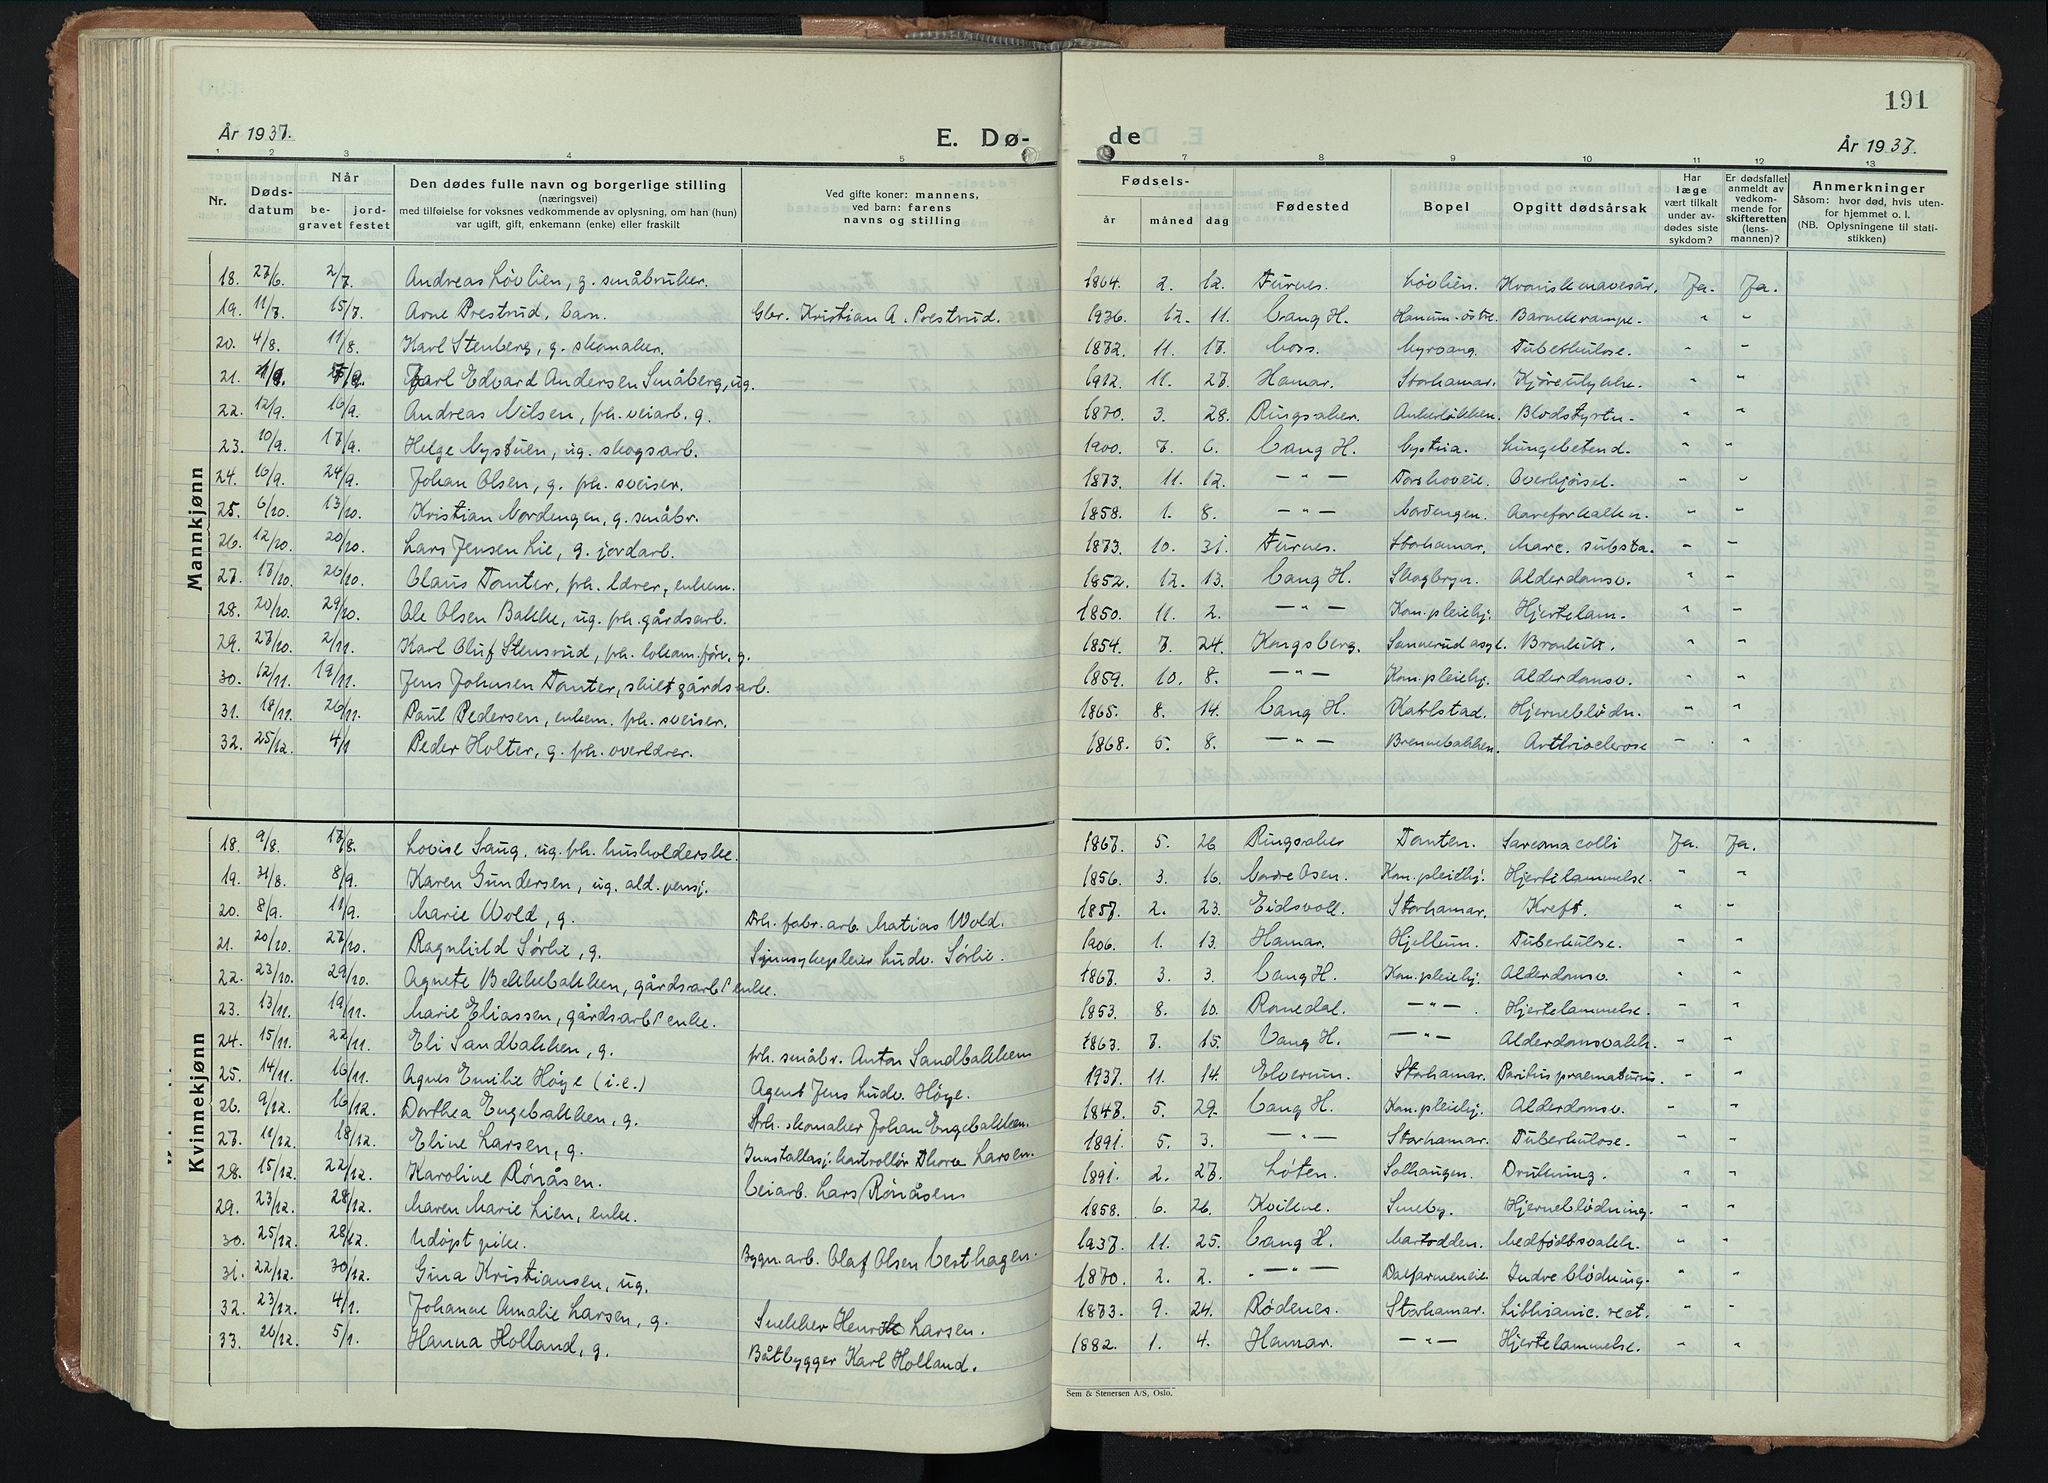 191
År 1937.
E. Dø-
de
År 1937.
1 2 3 4 5 7 8 9 10 11 12 13
Nr.
Døds-
datum
Når
be-
gravet
jord-
festet
Den dødes fulle navn og borgerlige stilling
(næringsvei)
med tilføielse for voksnes vedkommende av oplysning, om han (hun)
var ugift, gift, enkemann (enke) eller fraskilt
Ved gifte koner: mannens,
ved barn: farens
navns og stilling
Fødsels-
år måned dag
Fødested
Bopel
Opgitt dødsårsak
Har
læge
vært tilkalt
under av-
dødes siste
sykdom?
Er dødsfallet
anmeldt av
vedkom-
mende for
skifteretten
(lens-
mannen)?
Anmerkninger
Såsom: hvor død, hvis uten-
for hjemmet o. l.
(NB. Oplysningene til stati-
stikken)
Mannkjønn
18. 27/6. 2/7. Andreas Løvlien, g. småbruker. 1864. 2. 12. Furnes. Løvlien. Kronisk mavesår. Ja. Ja.
19. 11/7. 15/7. Arne Prestrud, barn. Gbr. Kristian A. Prestrud. 1936. 12. 11. Vang H. Hanum-østre. Barnekrampe. " "
20. 4/8. 11/8. Karl Stenberg, g. skomaker. 1872. 11. 17. Moss. Myrvang. Tuberkulose. " "
21. Karl Edvard Andersen Småberg, ug. 1912. 11. 27. Hamar. Storhamar. Kjøreulykke. " "
22. 12/9. 16/9. Andreas Nilsen, frh. veiarb. g. 1870. 3. 28. Ringsaker. Ankerløkken. Blodstyrtn. " "
23. 10/9. 17/9. Helge Nystuen, ug. skogsarb. 1900. 7. 6. Vang H. Nystua. Lungebetend. " "
24. 16/9. 24/9. Johan Olsen, g. frh. sveiser. 1873. 11. 12. — " — Torshoveie. Overkjørsel. " "
25. 6/10. 13/10. Kristian Nordengen, g. småbr. 1858. 1. 8. — " — Nordengen. Aareforkalkn. " "
26. 12/10. 20/10. Lars Jensen Lie, g. jordarb. 1873. 10. 31. Furnes. Storhamar. Marc. substa. " "
27. 17/10. 26/10. Claus Tomter, frh. lærer, enkem. 1852. 12. 13. Vang H. Skogbryn. Alderdomsv. " "
28. 20/10. 29/10. Ole Olsen Bakke, ug. frh. gårdsarb. 1850. 11. 2. — " — Kom. pleiehj. Hjertelam. " "
29. 27/10. 2/11. Karl Oluf Stensrud, frh. lokom.før. g. 1854. 7. 24. Kongsberg. Sannerud asyl. Bronkitt. " "
30. 12/11. 19/11. Jens Johnsen Tomter, skilt gårdsarb. 1859. 10. 8. — " — Kom. pleiehj. Alderdomsv. " "
31. 18/11. 26/11. Paul Pedersen, enkem. frh. sveiser. 1865. 8. 14. Vang H. Kahlstad. Hjerneblødn. " "
32. 25/12. 4/1 Peder Holter, g. frh. overlærer. 1868. 5. 8. — " — Brennebakken. Arthrioclerose " "
Kvinnekjønn
18. 9/8. 17/8. Lovise Saug, ug. frh. husholderske. 1867. 5. 26 Ringsaker Tomten. Sarcoma colli Ja. Ja.
19. 31/8. 8/9. Karen Gundersen, ug. ald. pensj. 1856. 3. 16. Nordre Osen. Kom. pleiehj. Hjertelammelse. " "
20. 8/9. 11/9. Marie Wold, g. Frh. fabr. arb. Matias Wold. 1857. 2. 23. Eidsvoll. Storhamar. Kreft. " "
21. 20/10. 27/10. Ragnhild Sørlie, g. Sinnsykepleier Ludv. Sørlie. 1906. 1. 13. Hamar. Hjellum. Tuberkulose. " "
22. 23/10. 29/10. Agnete Bekkebakken, gårdsarb.s enke. 1867. 3. 3. Vang H. Kom. pleiehj. Alderdomsv. " "
23. 13/11. 19/11. Marie Eliassen, gårdsarb.s enke. 1853. 8. 10. Romedal. — " — Hjertelammelse. " "
24. 15/11. 22/11. Eli Sandbakken, g. frh. småbr. Anton Sandbakken 1863. 7. 15. Vang H. — " — Alderdomsvakh. " "
25. 14/11. 16/11. Agnes Emilie Høye (i.e.) Agent Jens Ludv. Høye. 1937. 11. 14. Elverum. Storhamar. Paritus praematurus. " "
26. 9/12. 16/12. Dorthea Engebakken, g. Frh. skomaker Johan Engebakken. 1847. 5. 29. Vang H. Kom. pleiehj. Alderdomsv. " "
27. 11/12. 18/12. Eline Larsen, g. Innstallasj. kontrollør Thorv Larsen. 1891. 5. 3. — " — Storhamar. Tuberkulose. " "
28. 15/12. 22/12. Karoline Rønåsen. Veiarb. Lars Rønåsen 1891. 2. 27. Løten. Solhaugen. Drukning. " "
29. 23/12. 28/12. Maren Marie Lien, enke. 1858. 6. 26. Kvikne. Smeby. Hjerneblødning. " "
30. 25/12. 28/12. Udøpt pike. Bygn. arb. Olaf Olsen Vesthagen. 1937. 11. 25. Vang H. Martodden. Medfødt svakh. " "
31. 22/12. 30/12. Gina Kristiansen, ug. 1870. 2. 2. — " — Dalfarmeneie. Indre blødning. " "
32. 23/12. 4/1. Johanne Amalie Larsen, g. Snekker Henrik Larsen. 1873. 9. 24. Rødenes. Storhamar. " "
33. 26/12. 5/1. Hanna Holland, g. Båtbygger Karl Holland. 1882. 1. 4. Hamar. — " — Hjertelammelse. " "
Sem & Stenersen A/S, Oslo.